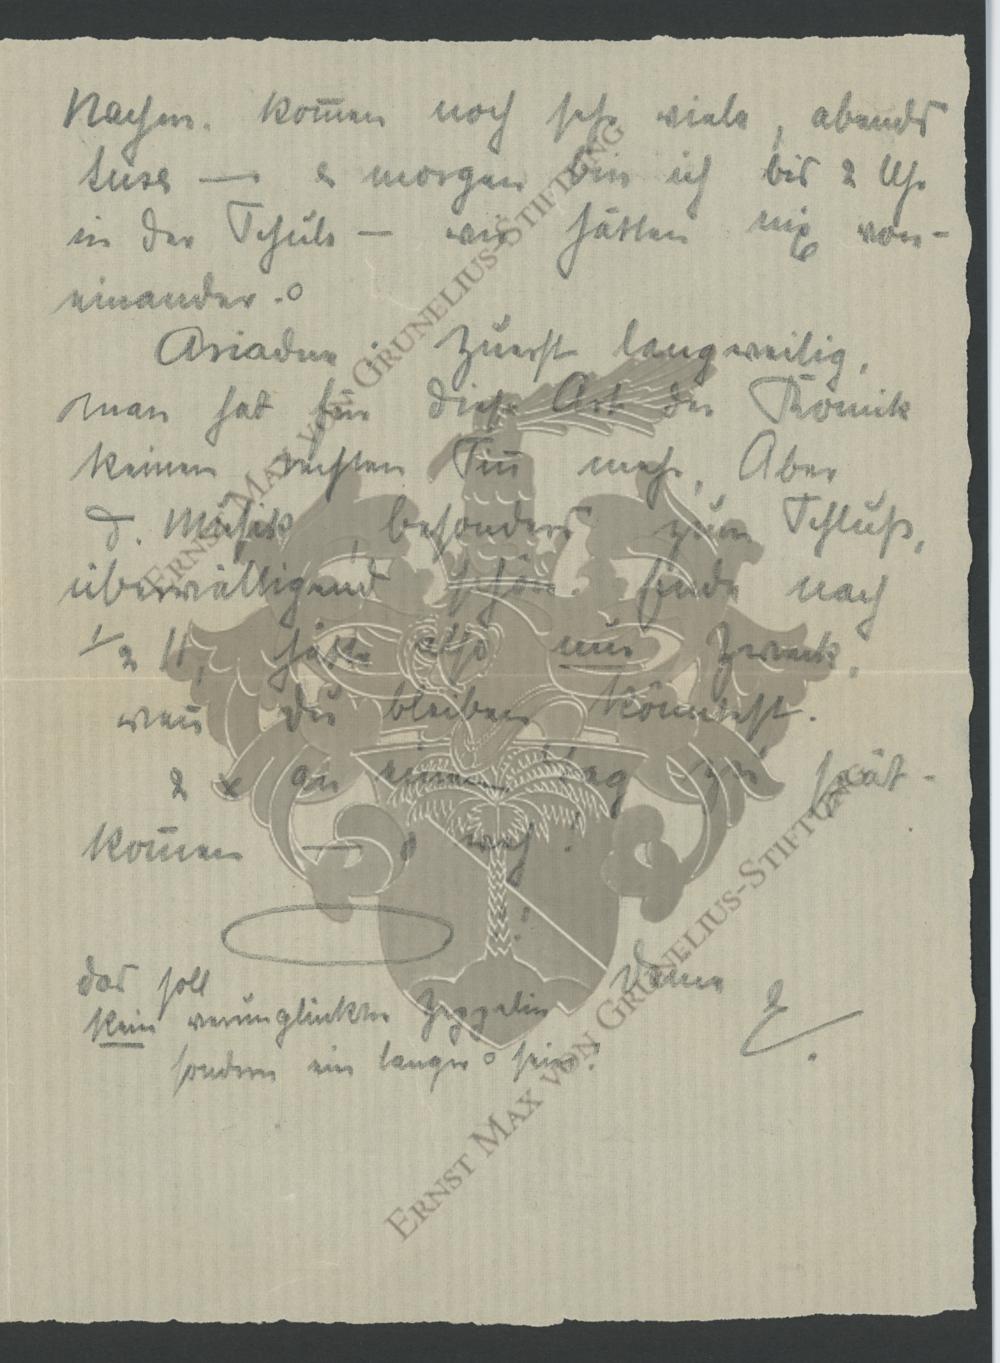 Nachm. kom̄en noch sehr viele, abends
Suse — & morgen bin ich bis 2 Uhr
in der Schule — wir hätten nix von-
einander. o
Ariadne i. zuerst langweilig,
man hat für diese Art der Komik
keinen rechten Sin̄ mehr, Aber
d. Musik, besonders zum Schluß,
überwältigend schön. Ende nach
1/2 11, hätte also nur Zweck,
wen̄ Du bleiben könntest.
2 x an einem Tag zu spät-
kom̄en — o weh!
das soll
kein verunglückter Zeppelin
sondern ein langer o sein!
Deine
ERNST MAX VON GRUNELIUS-STIFTUNG
ERNST MAX VON GRUNELIUS-STIFTUNG